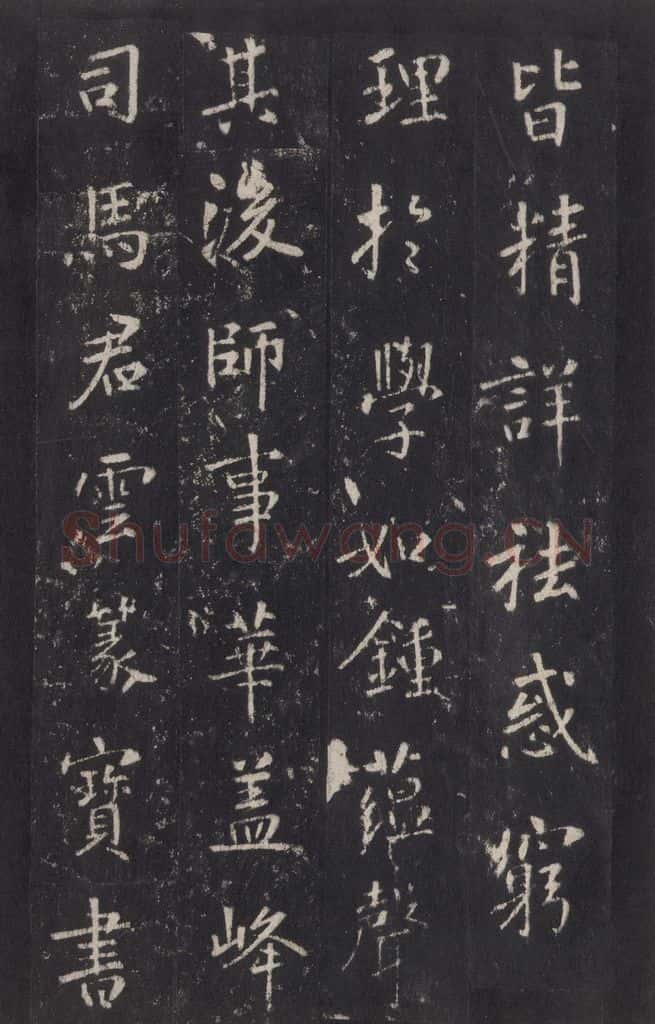 皆精詳祛惑窮
理於學如鍾蘊聲
其後師事華盖峰
司馬君雲篆寶書
Shufawang.CN